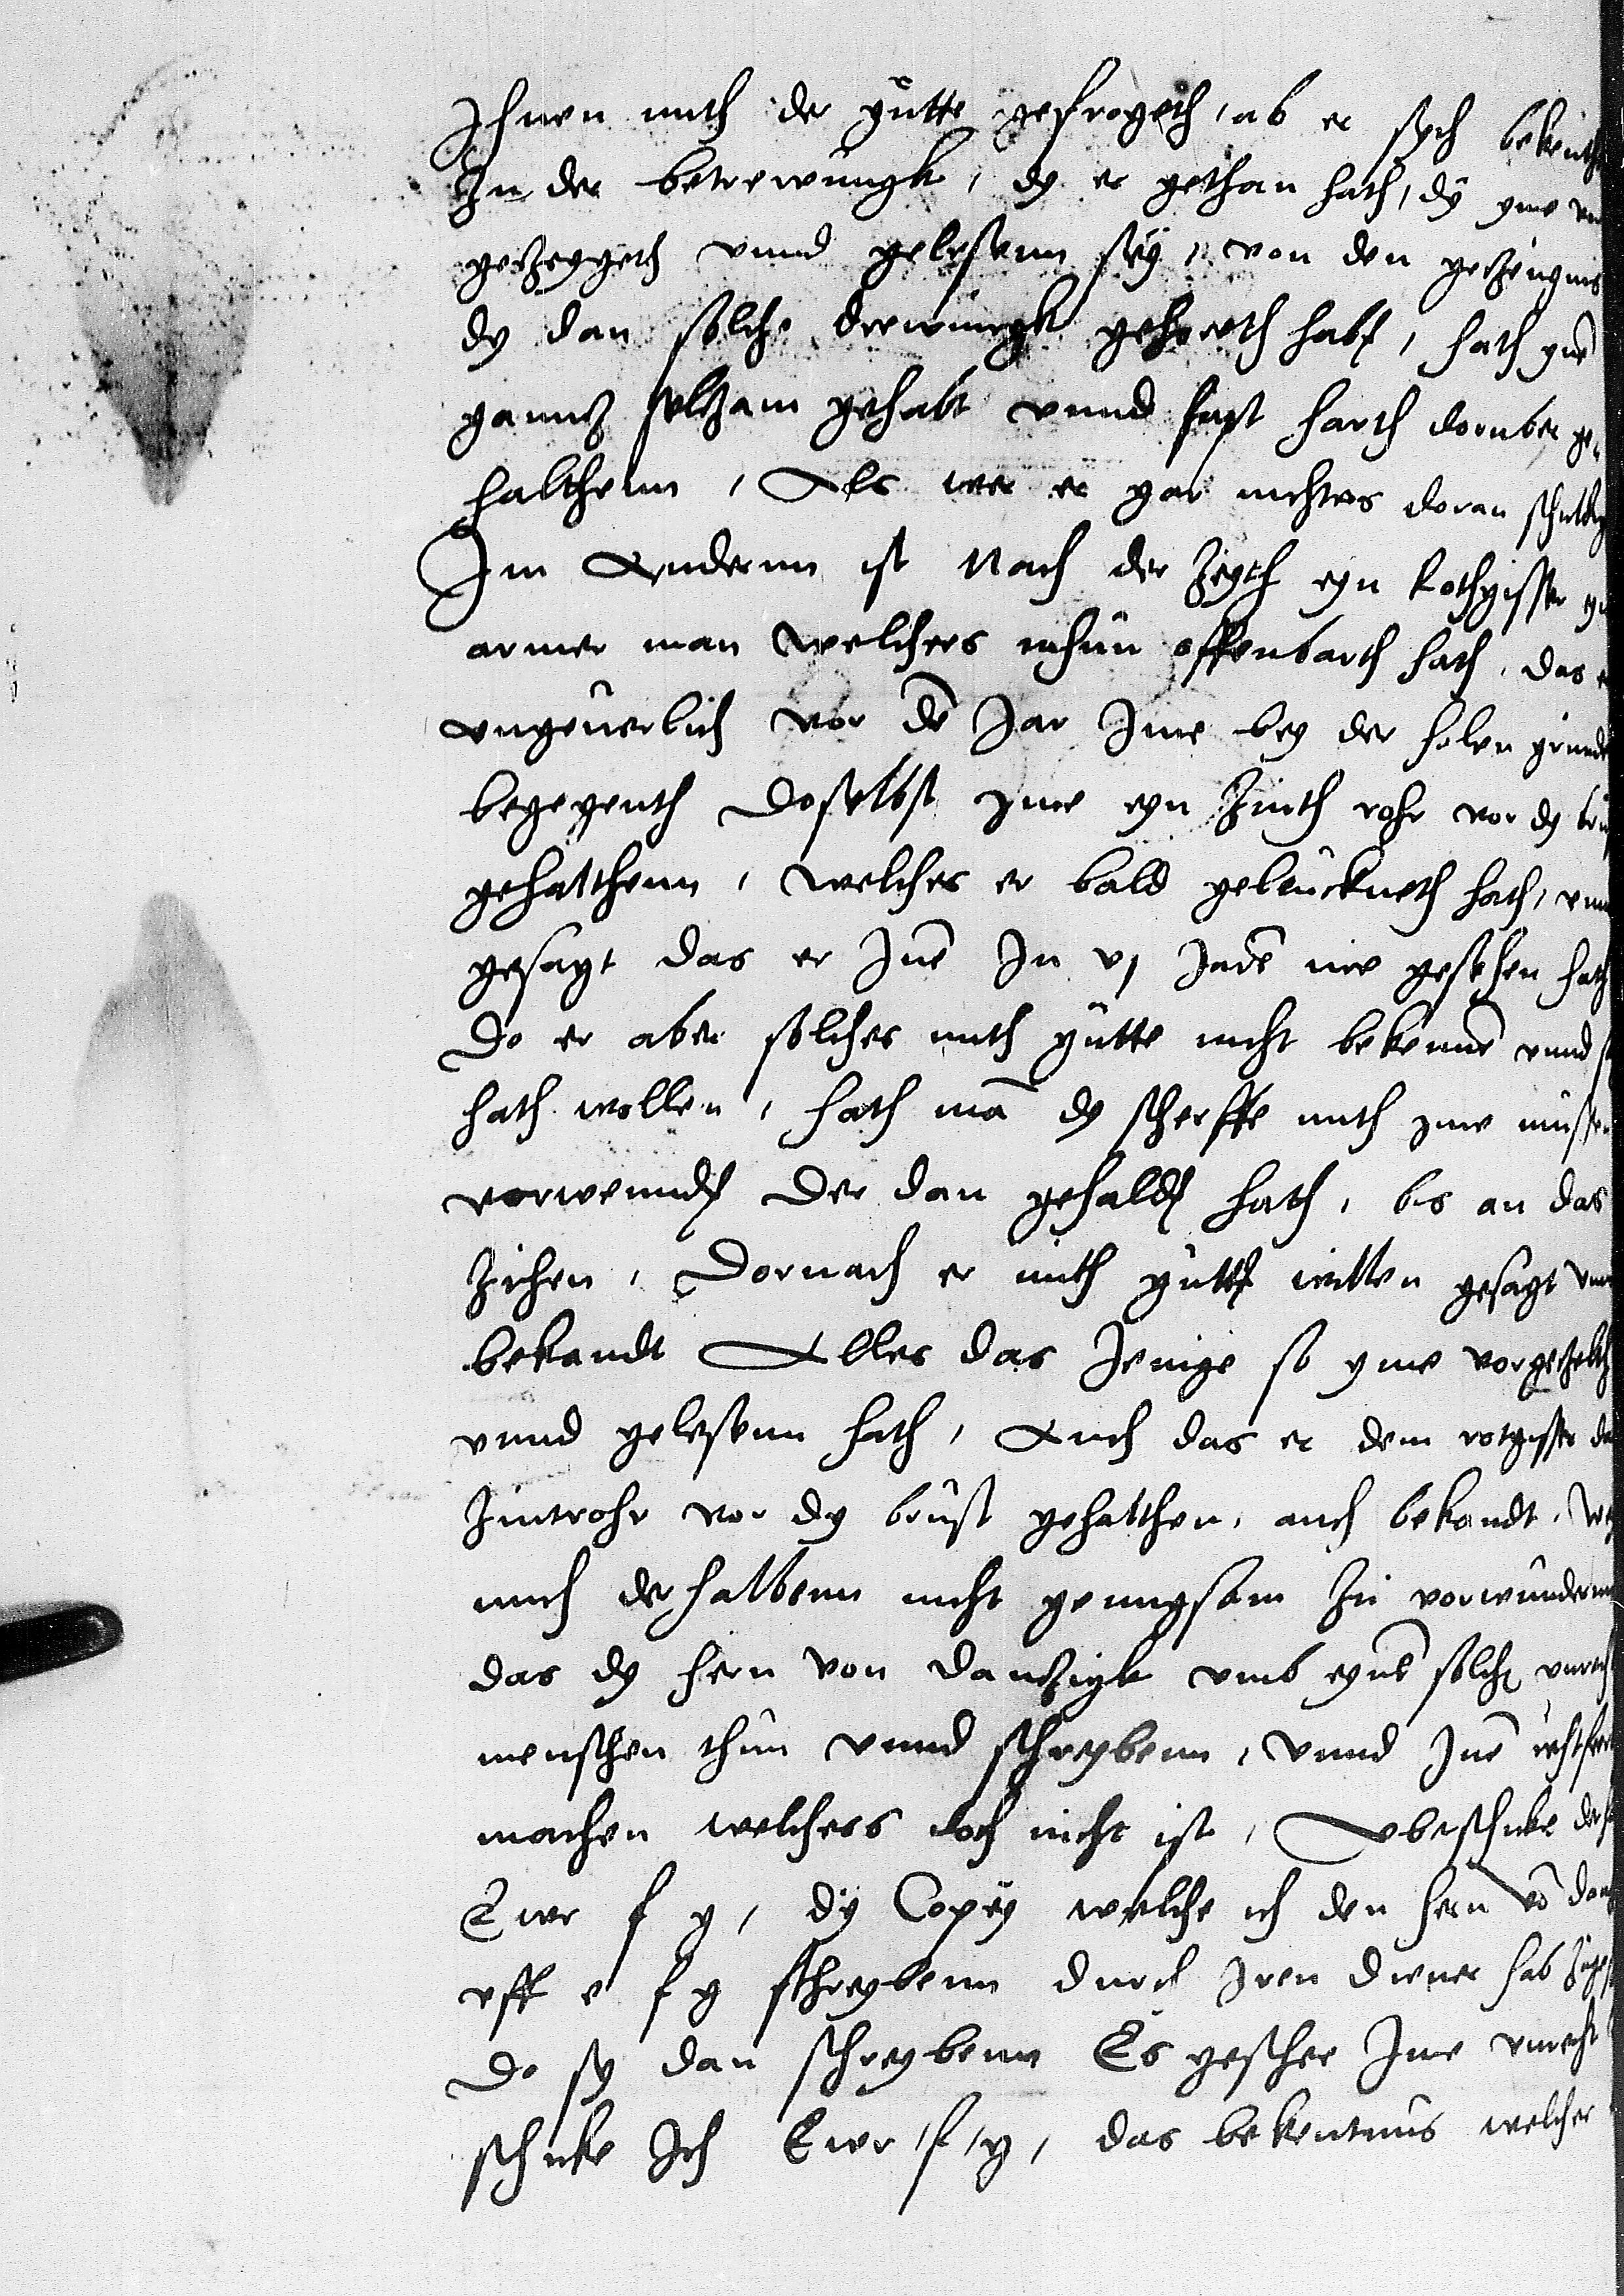 Ihnen mith der gutte gefrogeth, ab er sych bekenth
In der betrewungk, dy er gethan hath, dy yme
geczeygeth vnnd gelesenn sey, von den geczeugnis
dy dan solche drewungk gehoerth hab, hath yne
gantz seltzam gehabt vnnd fast harth doruber ge-
halthenn, Als wer er gar nichtes doran schuldig
Im Andernn ist Nach der Zeyth eyn Rothgisser eyn
armer man welchers nhun offenbarth hath, das er
vngeuerlich vor dem Jar Ime bey der holen grunde
begegenth Doselbst yme eyn Zinth rohr vor dy brust
gehalthenn, welches er bald geleuckneth hath, vnnd
gesagt das er Ine In vj Jare nie gesehen hath
Do er aber solches mith gutte nicht bekenne vnnd
hath wollen, hath ma dy scherffe mith yme mussen
vorwennd Der dan gehald hath, bis an das
Zichen, Dornach er mith gutt willen gesagt vnnd
bekandt Alles das Jenige so yme vorgeczelth
vnnd gelesenn hath, Auch das er dem rotgisser das
Zintrohr vor dy brust gehalthen, auch bekandt,
mich derhalbenn nicht genugsam zu vorwundernn
das dy hern von Danczigk vmb eyne solch
menschen thun vnnd schreybenn, vnnd Ine
machen welchers doch nicht ist, Vberschicke
Ewr f g, dy Copey welche ich den hern vo
vff e f g schreybenn durch Iren diener hab
Do sy dan schreybenn Es geschee Ime vnrecht
schicke Ich Ewr f g, das bekentnus welcher